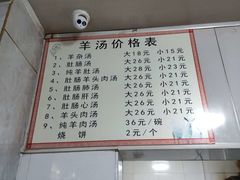 羊汤价格表
1、羊杂汤 大18元 小15元
2、肚肠汤 大26元 小21元
3、纯羊肚汤 大28元 小23元
4、肚肠羊头肉汤 大26元 小21元
5、肚肠肺汤 大26元 小21元
6、肚肠肝汤 大26元 小21元
7、肚肠心汤 大26元 小21元
8、羊头肉汤 大26元 小21元
9、纯羊肉汤 36元/碗
烧饼 2元/个